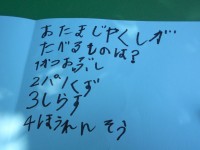 おたまじゃくしが
たべるものは?
1かつおぶし
2パンくず
3しらす
4ほうれんそう